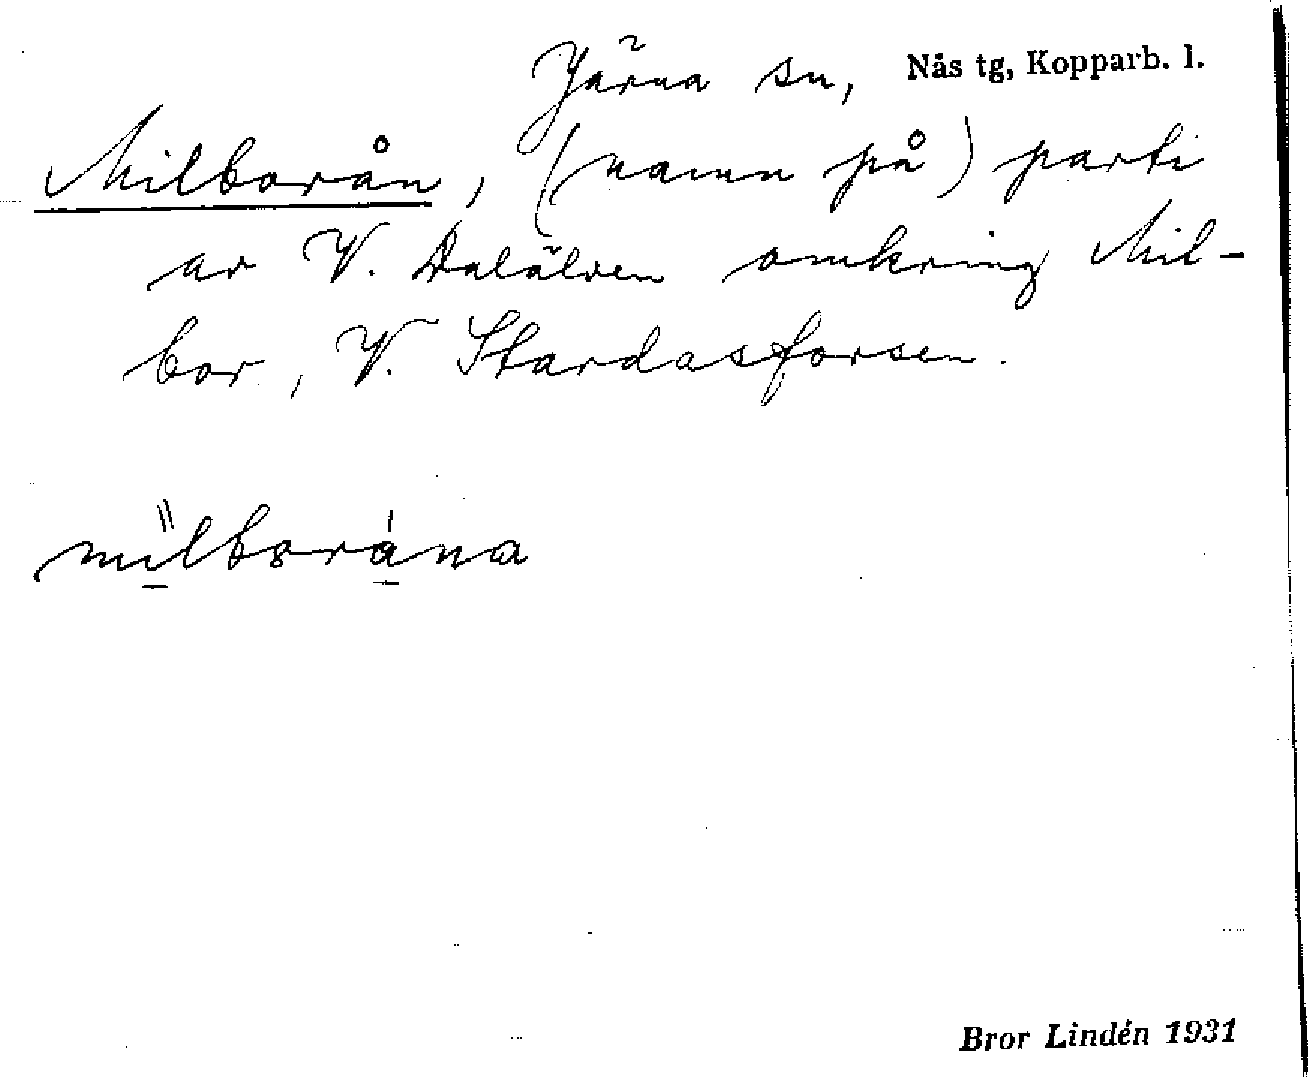 Järna sn, Nås tg, Kopparb. l.
Milborån, (namn på) parti
av V. Dalälven omkring Mil-
bor, V. Stardasforsen.
milborána
Bror Lindén 1931